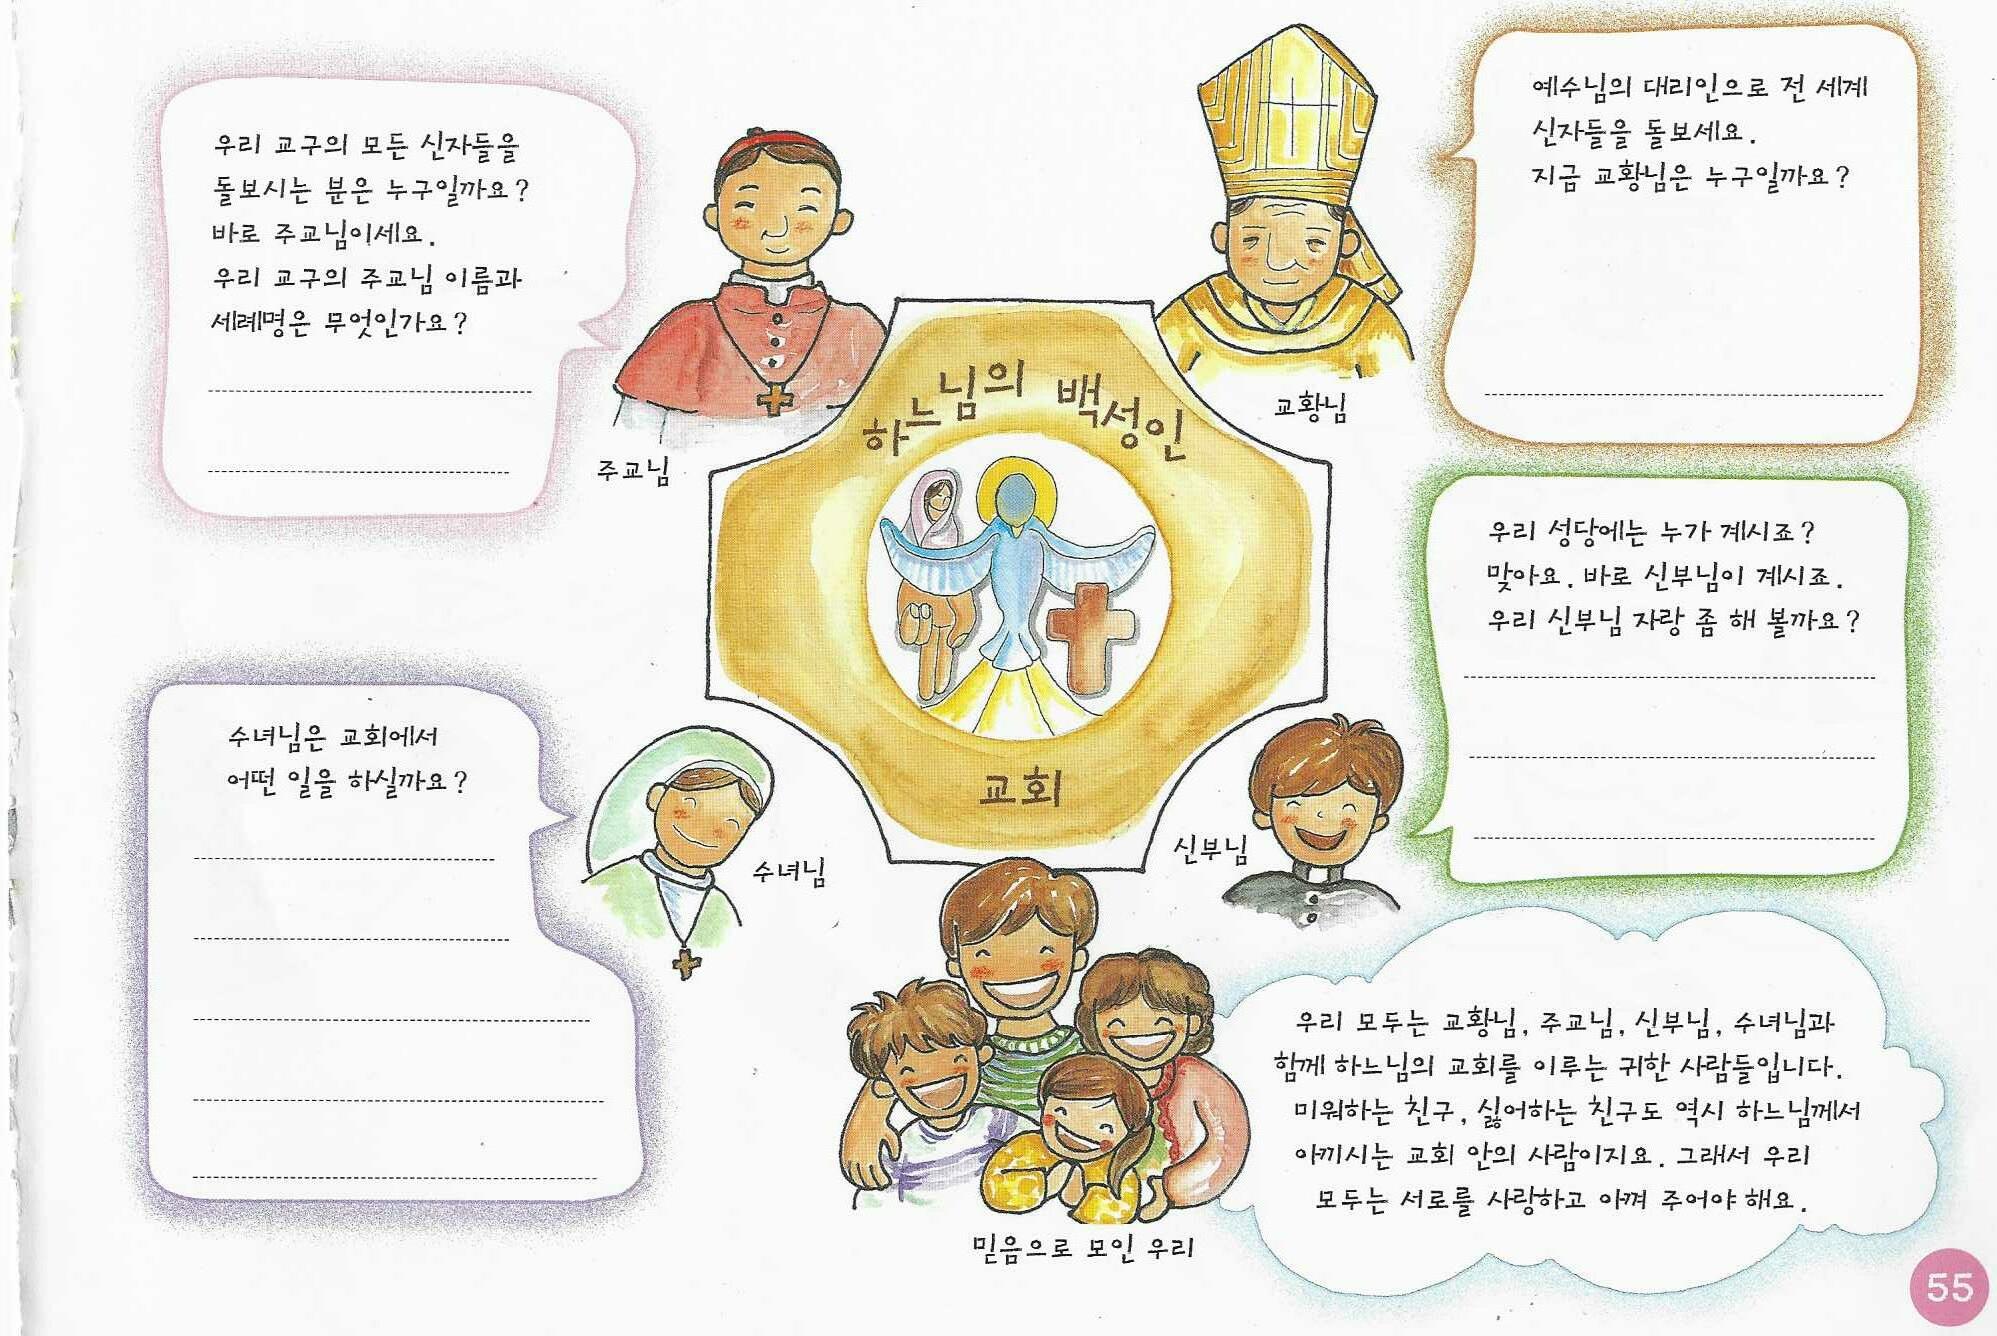 우리 교구의 모든 신자들을
돌보시는 분은 누구일까요?
바로 주교님이세요.
우리 교구의 주교님 이름과
세례명은 무엇인가요?
주교님
예수님의 대리인으로 전 세계
신자들을 돌보세요.
지금 교황님은 누구일까요?
교황님
하느님의 백성인
교회
우리 성당에는 누가 계시죠?
맞아요. 바로 신부님이 계시죠.
우리 신부님 자랑 좀 해 볼까요?
신부님
수녀님은 교회에서
어떤 일을 하실까요?
수녀님
믿음으로 모인 우리
우리 모두는 교황님, 주교님, 신부님, 수녀님과
함께 하느님의 교회를 이루는 귀한 사람들입니다.
미워하는 친구, 싫어하는 친구도 역시 하느님께서
아끼시는 교회 안의 사람이지요. 그래서 우리
모두는 서로를 사랑하고 아껴 주어야 해요.
55